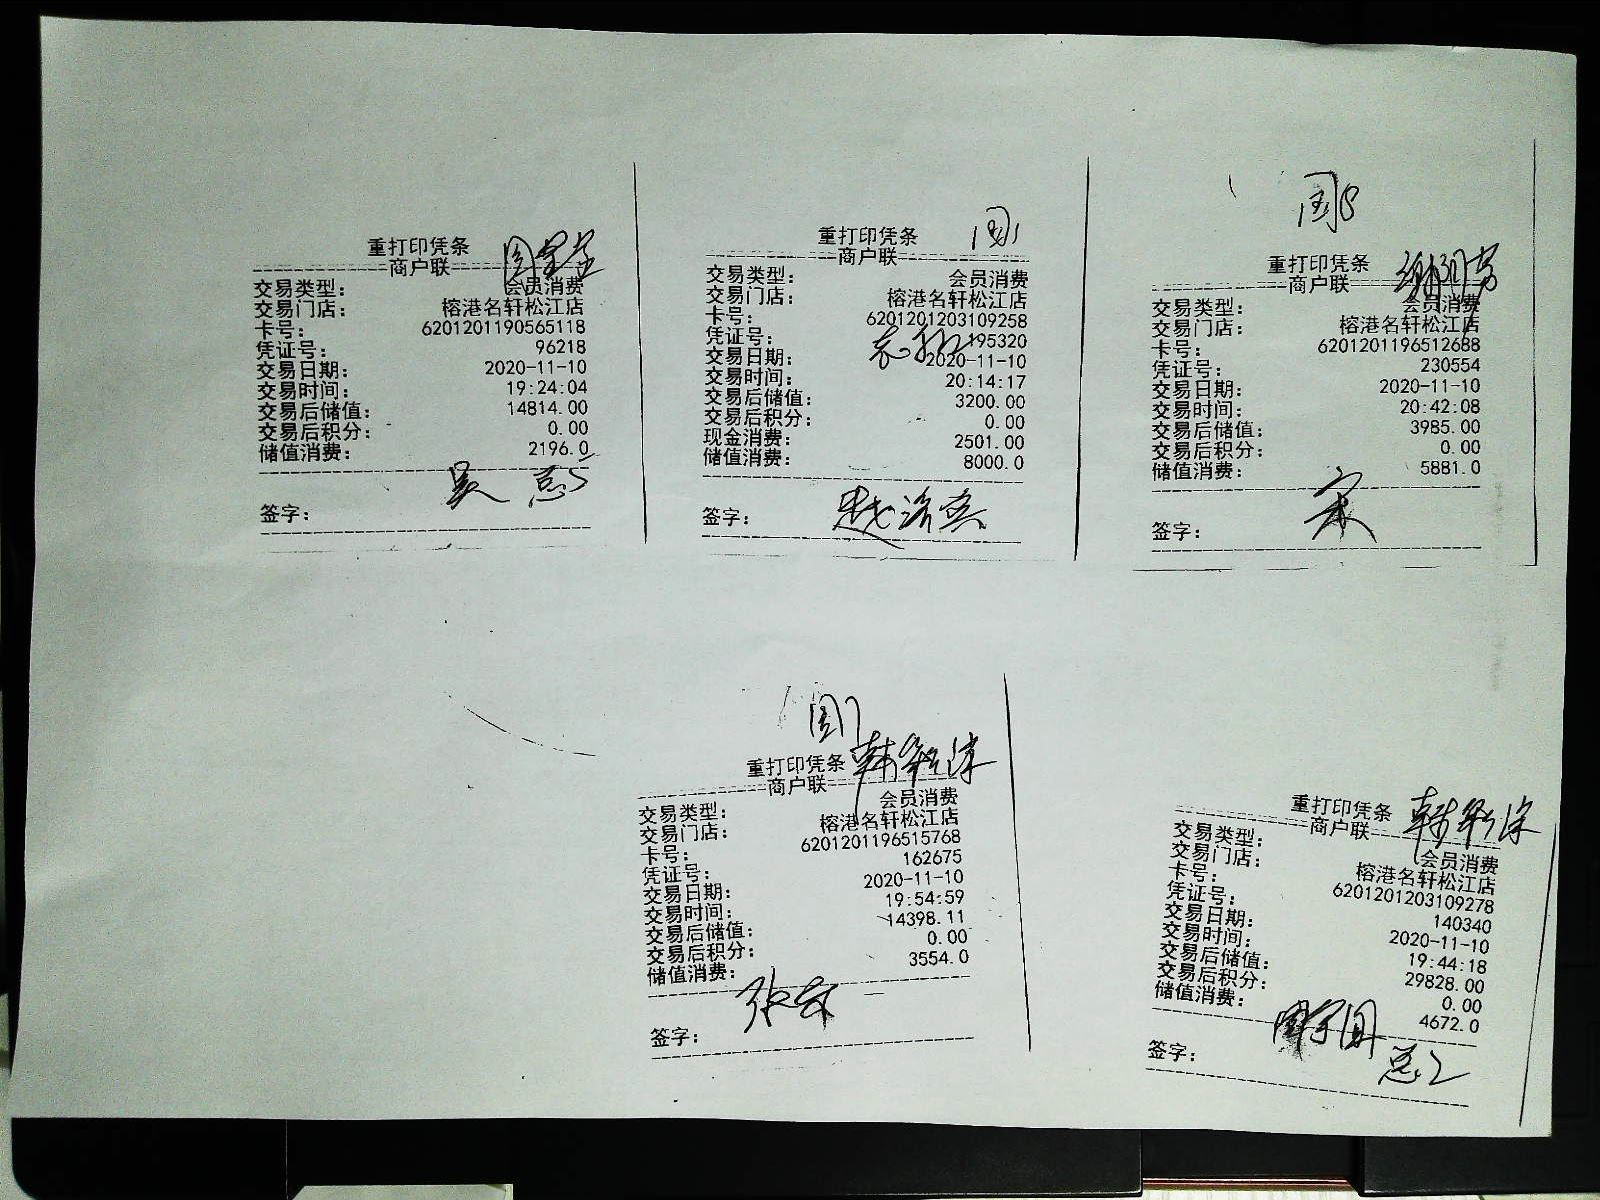 重打印凭条
商户联
交易类型： 会员消费
交易门店： 榕港名轩松江店
卡号： 6201201190565118
凭证号： 96218
交易日期： 2020-11-10
交易时间： 19:24:04
交易后储值： 14814.00
交易后积分： 0.00
储值消费： 2196.0
吴 总5
签字：
重打印凭条
商户联
交易类型： 会员消费
交易门店： 榕港名轩松江店
卡号： 6201201203109258
凭证号： 195320
交易日期： 2020-11-10
交易时间： 20:14:17
交易后储值： 3200.00
交易后积分： 0.00
现金消费： 2501.00
储值消费： 8000.0
签字：
重打印凭条
商户联
交易类型： 会员消费
交易门店： 榕港名轩松江店
卡号： 6201201196512688
凭证号： 230554
交易日期： 2020-11-10
交易时间： 20:42:08
交易后储值： 3985.00
交易后积分： 0.00
储值消费： 5881.0
签字： 宋
重打印凭条
商户联
交易类型： 会员消费
交易门店： 榕港名轩松江店
卡号： 6201201196515768
凭证号： 162675
交易日期： 2020-11-10
交易时间： 19:54:59
交易后储值： 14398.11
交易后积分： 0.00
储值消费： 3554.0
签字：
重打印凭条
商户联
交易类型： 会员消费
交易门店： 榕港名轩松江店
卡号： 6201201203109278
凭证号： 140340
交易日期： 2020-11-10
交易时间： 19:44:18
交易后储值： 29828.00
交易后积分： 0.00
储值消费： 4672.0
签字：
总2